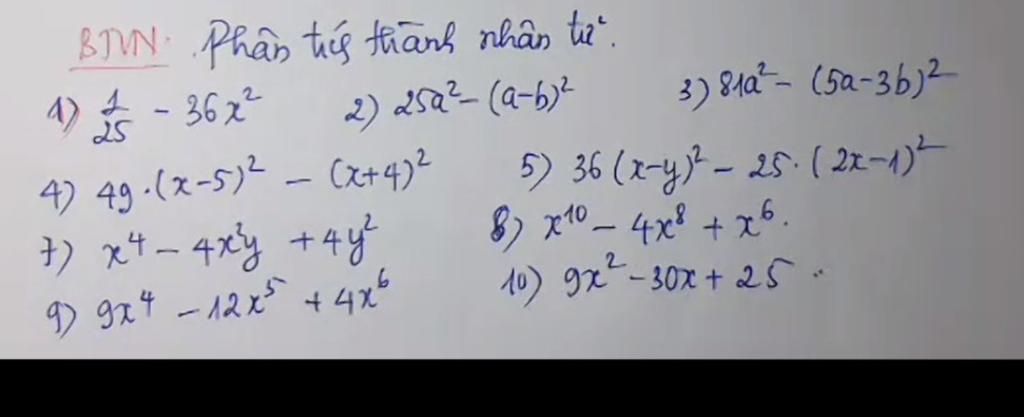 BTVN. Phân tích thành nhân tử.
1) 1/25 - 36x² 2) 25a² - (a-b)² 3) 81a² - (5a-3b)²
4) 49.(x-5)² - (x+4)² 5) 36(x-y)² - 25.(2x-1)²
7) x⁴ - 4x²y + 4y² 8) x¹⁰ - 4x⁸ + x⁶.
9) 9x⁴ - 12x⁵ + 4x⁶ 10) 9x² - 30x + 25